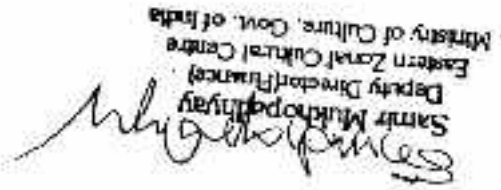 Samir Mukhopadhyay
Deputy Director(Finance)
Eastern Zonal Cultural Centre
Ministry of Culture, Govt. of India